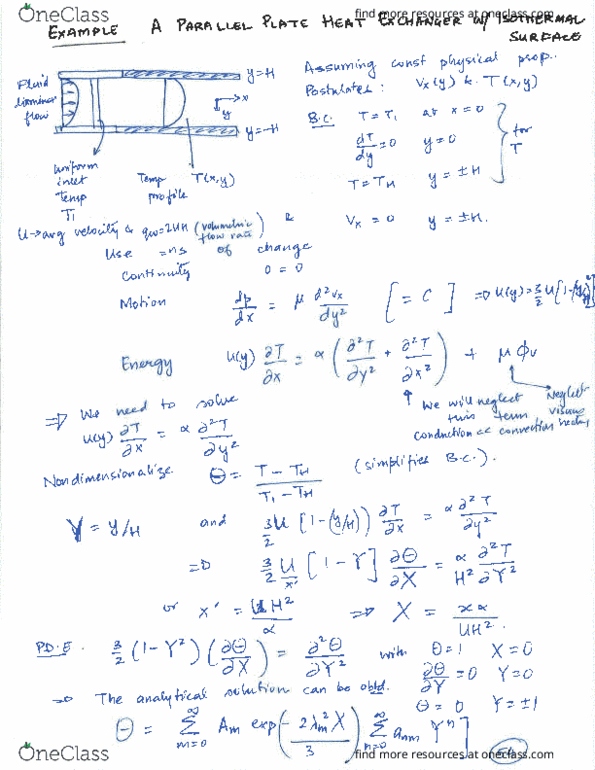 OneClass
find more resources at oneclass.com
EXAMPLE A PARALLEL PLATE HEAT EXCHANGER w/ ISOTHERMAL
SURFACE
Assuming const physical prop..
Postulates: Vx(y) & T(x,y)
Fluid
laminar
flow
y=H
x
y
y=-H
Uniform
inlet
temp
T1
Temp
profile
T(x,y)
B.C. T = T1 at x = 0
dT/dy = 0 y = 0
T = TH y = ±H
for
T
U → avg velocity & qw = 2UH (volumetric flow rate) &
Vx = 0 y = ±H.
Use =ns of change
Continuity 0 = 0
Motion dp/dx = μ d²vx/dy² [= C] ⇒ u(y) = 3/2 U [1-(y/H)²]
Energy u(y) ∂T/∂x = α (∂²T/∂y² + ∂²T/∂x²) + μ Φv
We will neglect
this term
conduction << convection
Neglect
viscous
heating
⇒ We need to solve
u(y) ∂T/∂x = α ∂²T/∂y²
Nondimensionalize Θ = (T - TH)/(T1 - TH) (simplifies B.C.).
Y = y/H and 3/2 U [1-(y/H)] ∂T/∂x = α ∂²T/∂y²
⇒ 3/2 U/x' [1-Y] ∂Θ/∂X = α/H² ∂²T/∂Y²
or x' = UH²/α ⇒ X = xα/UH².
P.D.E. 3/2 (1-Y²) (∂Θ/∂X) = ∂²Θ/∂Y² with Θ = 1 X = 0
∂Θ/∂Y = 0 Y = 0
⇒ The analytical solution can be obtd. Θ = 0 Y = ±1
Θ = ∑ m=0 ∞ Am exp(-2λm²X/3) ∑ n=0 ∞ anm Yⁿ]
OneClass
find more resources at oneclass.com